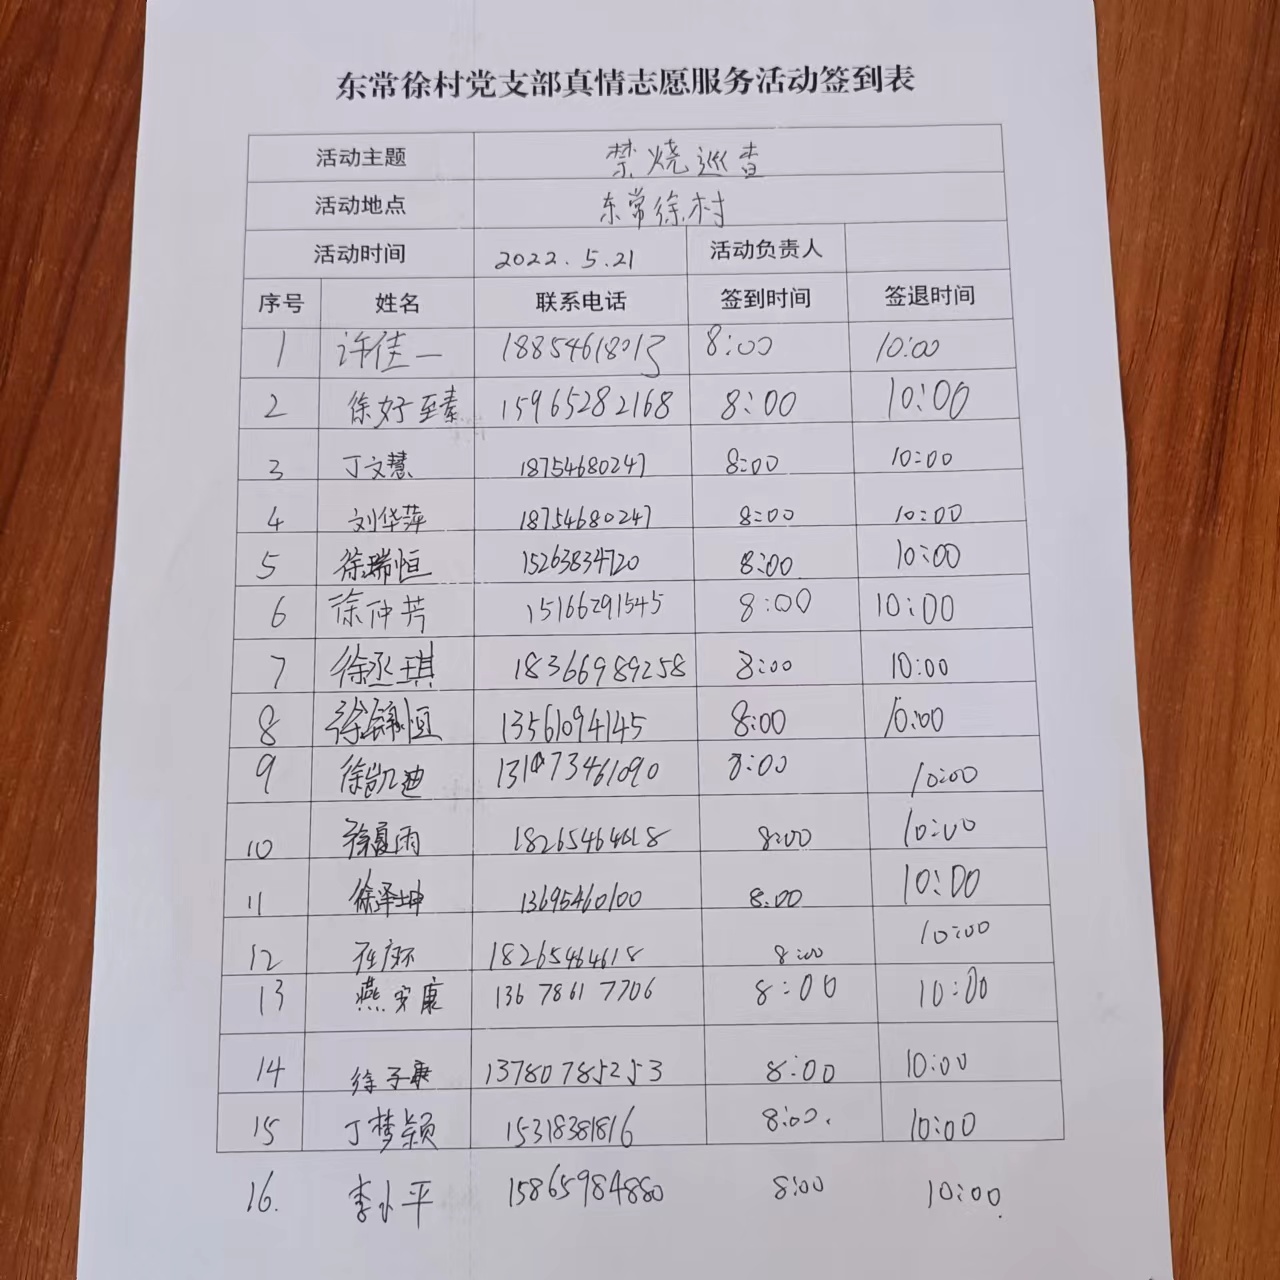 东常徐村党支部真情志愿服务活动签到表
活动主题 禁烧巡查
活动地点 东常徐村
活动时间 2022.5.21 活动负责人
序号 姓名 联系电话 签到时间 签退时间
1 许佳一 18854618013 8:00 10:00
2 徐好至素 15965282168 8:00 10:00
3 丁文慧 18754680247 8:00 10:00
4 刘华萍 18754680247 8:00 10:00
5 徐瑞恒 15263834720 8:00 10:00
6 徐仲芳 15166291545 8:00 10:00
7 徐丞琪 18366989258 8:00 10:00
8 徐锦恒 13561094145 8:00 10:00
9 徐凯迪 8:00 10:00
10 徐夏雨 18265464618 8:00 10:00
11 徐泽坤 13695460100 8:00 10:00
12 18265464618 8:00 10:00
13 燕安康 13678617706 8:00 10:00
14 徐子康 13780785253 8:00 10:00
15 丁梦颖 15318381816 8:00. 10:00
16. 李小平 15865984880 8:00 10:00.